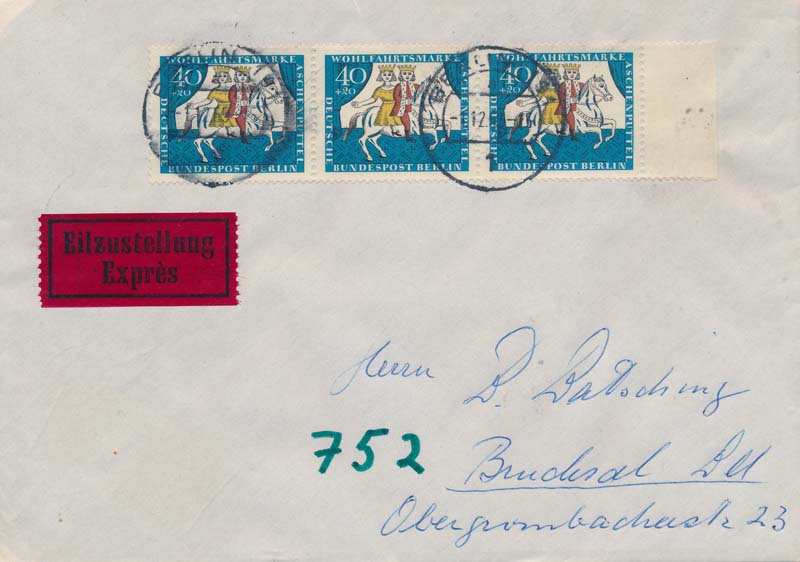 WOHLFAHRTSMARKE
40
+20
ASCHENPUTTEL
DEUTSCHE
BUNDESPOST BERLIN
WOHLFAHRTSMARKE
40
+20
ASCHENPUTTEL
DEUTSCHE
BUNDESPOST BERLIN
WOHLFAHRTSMARKE
40
+20
ASCHENPUTTEL
DEUTSCHE
BUNDESPOST BERLIN
BERLIN
12
Eilzustellung
Exprès
Herrn B. Batsching
752
Bruchsal
Obergrombacherstr 23